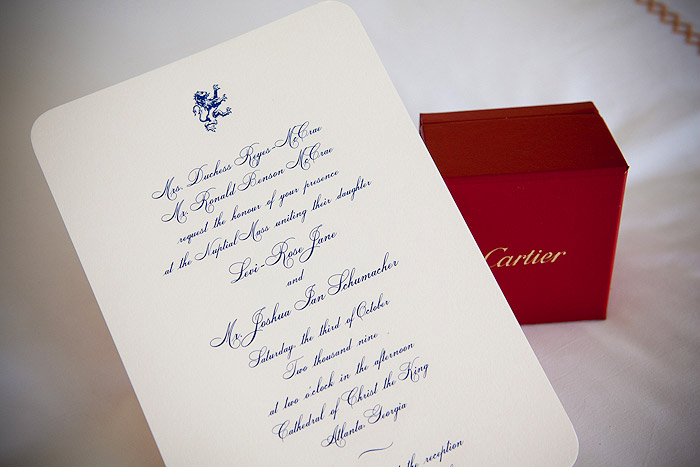 Mrs. Duchess Reyes-McCrae
Mr. Ronald Benson McCrae
request the honour of your presence
at the Nuptial Mass uniting their daughter
Levi-Rose Jane
and
Mr. Joshua Ian Schumacher
Saturday the third of October
Two thousand nine
at two o'clock in the afternoon
Cathedral of Christ the King
Atlanta Georgia
the reception
Cartier